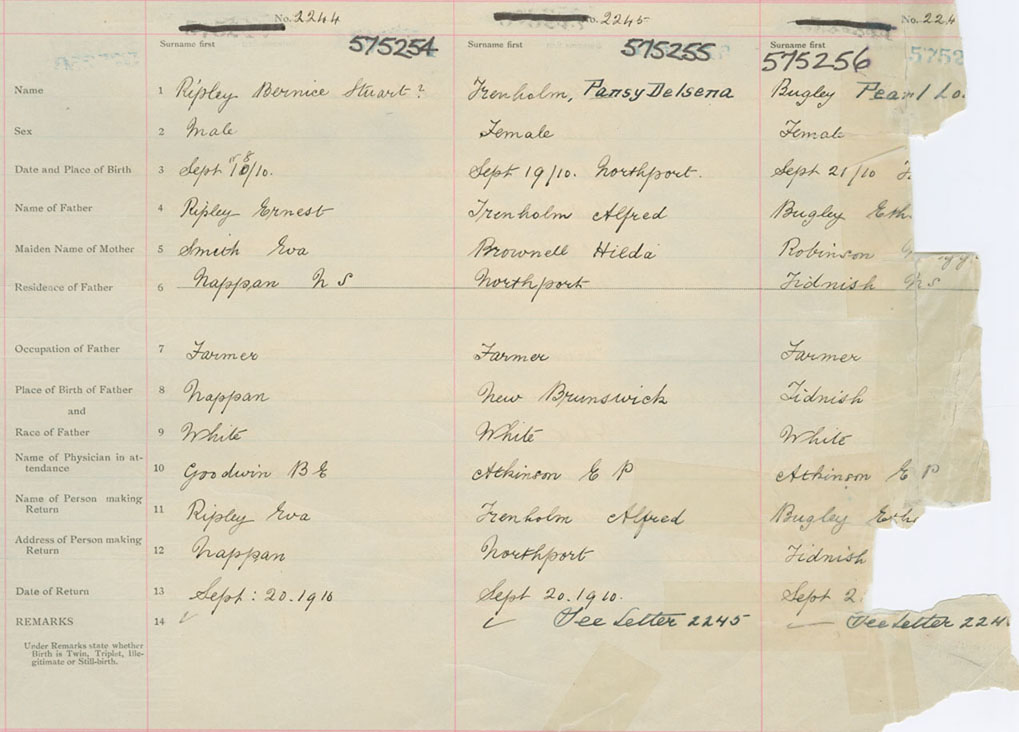 No. 2244 No. 2245 No. 224
Surname first 575254 Surname first 575255 Surname first 575256
Name 1 Ripley Bernice Stuart? Trenholm, Pansy Delsena Bugley Pearl Lo
Sex 2 Male Female Femal
Date and Place of Birth 3 Sept /10. Sept 19/10. Northport. Sept 21/10
Name of Father 4 Ripley Ernest Trenholm Alfred Bugley
Maiden Name of Mother 5 Smith Eva Brownell Hilda Robinson
Residence of Father 6 Nappan N S Northport Tidnish N S
Occupation of Father 7 Farmer Farmer Farmer
Place of Birth of Father 8 Nappan New Brunswick Tidnish
and
Race of Father 9 White White White
Name of Physician in at-
tendance 10 Goodwin B E Atkinson E P Atkinson E P
Name of Person making
Return 11 Ripley Eva Trenholm Alfred Bugley
Address of Person making
Return 12 Nappan Northport Tidnish
Date of Return 13 Sept: 20. 1910 Sept 20. 1910. Sept 2
REMARKS 14 See Letter 2245 See Letter 224
Under Remarks state whether
Birth is Twin, Triplet, Ille-
gitimate or Still-birth.